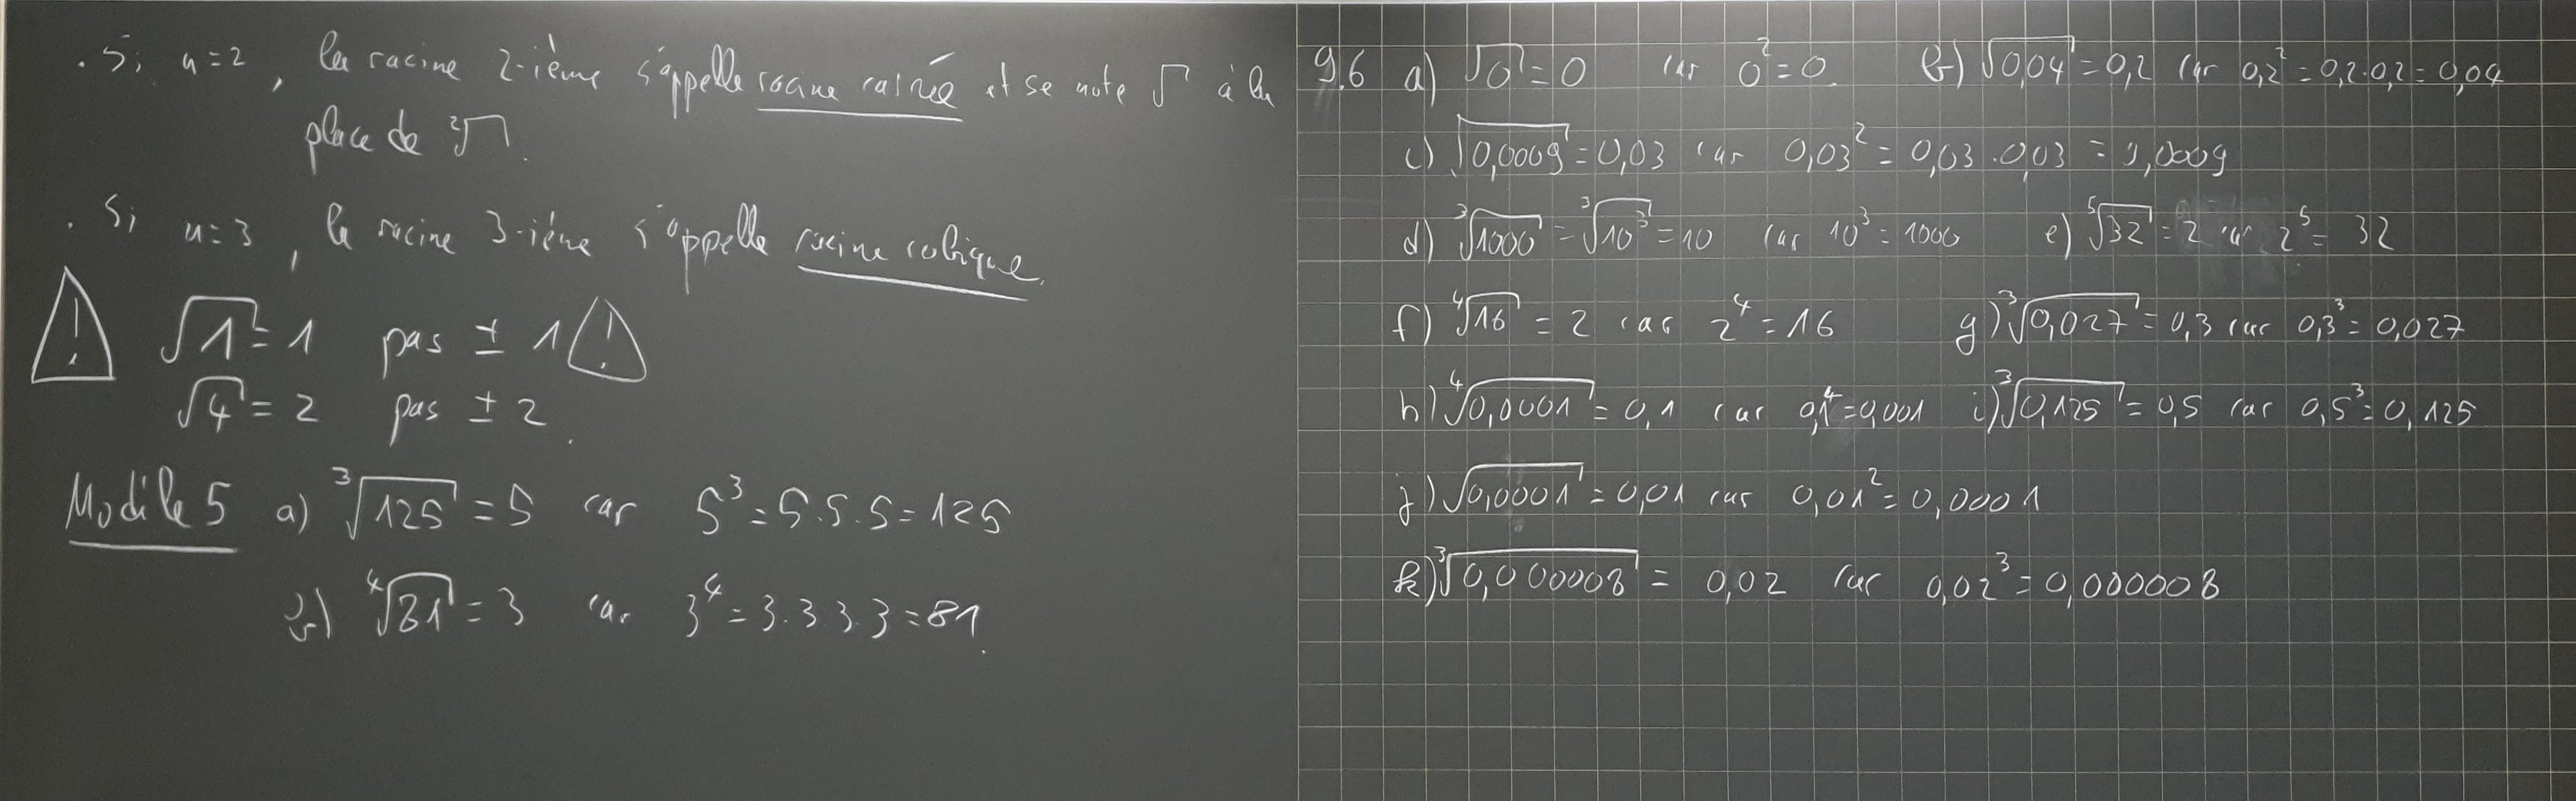 . Si n=2, la racine 2-ième s'appelle racine carrée et se note √ à la
place de ²√.
. Si n=3, la racine 3-ième s'appelle racine cubique.
⚠ √1 = 1 pas ± 1 ⚠
√4 = 2 pas ± 2.
Modèle 5 a) ³√125 = 5 car 5³ = 5.5.5 = 125
b) ⁴√81 = 3 car 3⁴ = 3.3.3.3 = 81.
9.6 a) √0 = 0 car 0² = 0. b) √0,04 = 0,2 car 0,2² = 0,2.0,2 = 0,04
c) √0,0009 = 0,03 car 0,03² = 0,03.0,03 = 0,0009
d) ³√1000 = ³√10³ = 10 car 10³ = 1000 e) ⁵√32 = 2 car 2⁵ = 32
f) ⁴√16 = 2 car 2⁴ = 16 g) ³√0,027 = 0,3 car 0,3³ = 0,027
h) ⁴√0,0001 = 0,1 car 0,1⁴ = 0,001 i) ³√0,125 = 0,5 car 0,5³ = 0,125
j) √0,0001 = 0,01 car 0,01² = 0,0001
k) ³√0,000008 = 0,02 car 0,02³ = 0,000008